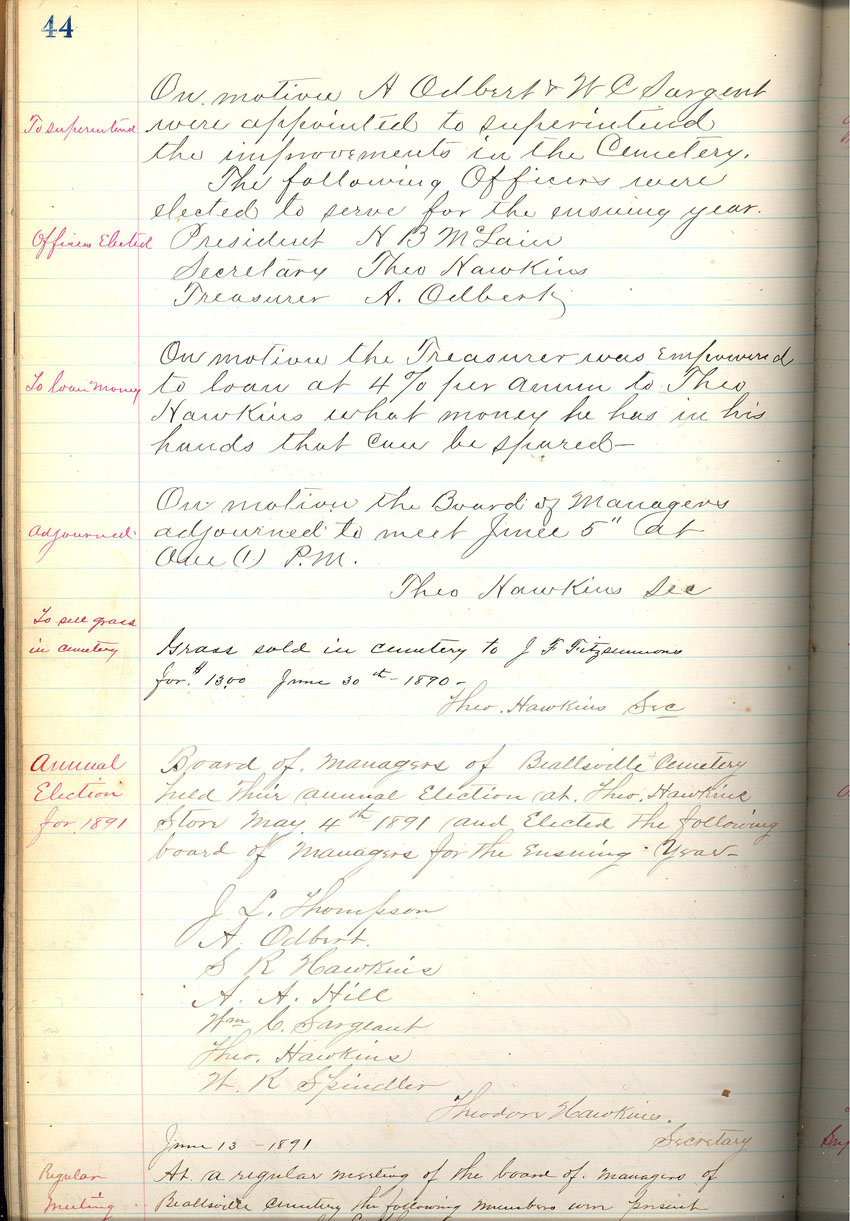 44
On motion A Odbert & W C Sargent
To superintend
were appointed to superintend
the improvements in the Cemetery.
The following Officers were
elected to serve for the ensuing year.
Officers Elected
President H B McLain
Secretary Theo Hawkins
Treasurer A. Odbert
On motion the Treasurer was Empowered
To loan money
to loan at 4% per annum to Theo
Hawkins what money he has in his
hands that can be spared—
On motion the Board of Managers
Adjourned
adjourned to meet June 5" at
One (1) P.M.
Theo Hawkins Sec
To sell grass
in cemetery
Grass sold in cemetery to J F Fitzsimmons
for $13.00 June 30th - 1890 -
Theo. Hawkins Sec
Annual
Election
for 1891
Board of Managers of Beallsville Cemetery
held their annual Election at Theo. Hawkins
Store May 4th 1891 and Elected the following
board of Managers for the Ensuing Year-
J L. Thompson
A. Odbert.
S R Hawkins
A. A. Hill
Wm C. Sargeant
Theo. Hawkins
W. R Spindler
Theodore Hawkins.
Secretary
June 13 - 1891
Regular
Meeting
At a regular meeting of the board of Managers of
Beallsville Cemetery the following members were present